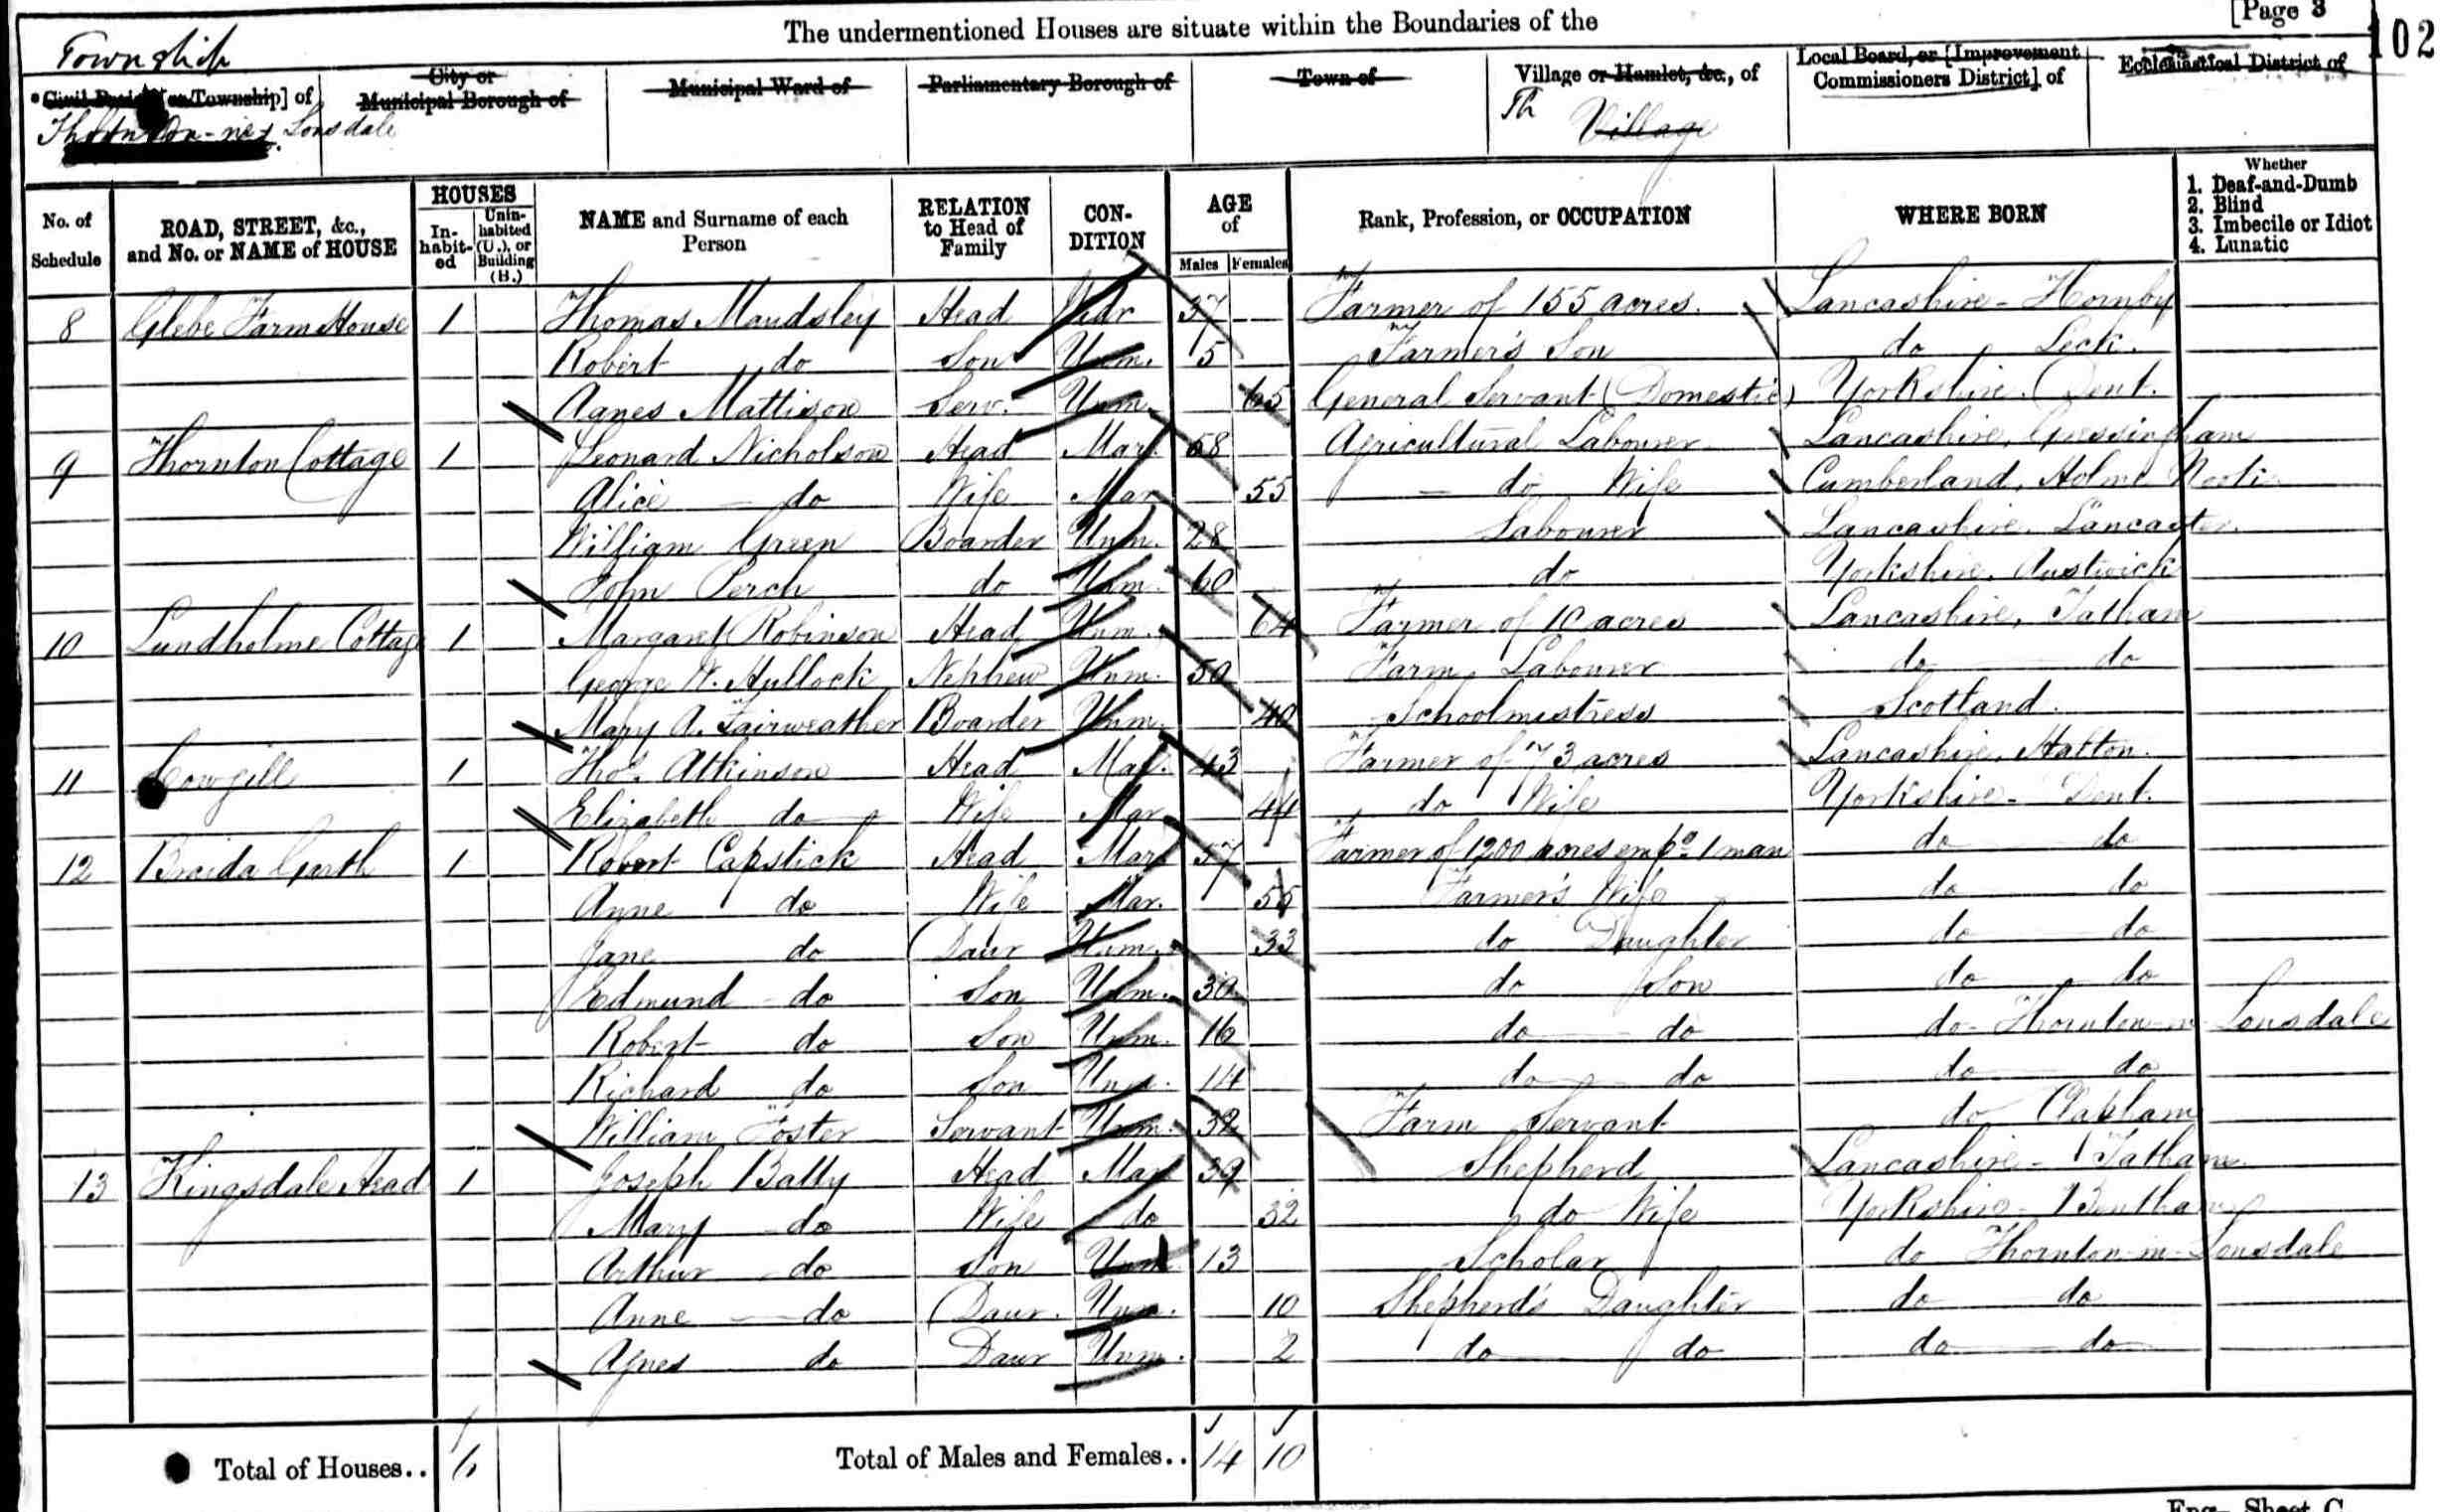 The undermentioned Houses are situate within the Boundaries of the
[Page 3
102
Township
* Civil Parish [or Township] of
City or Municipal Borough of
Municipal Ward of
Parliamentary Borough of
Town of
Village or Hamlet, &c., of
Local Board, or [Improvement Commissioners District] of
Ecclesiastical District of
Thornton-in-Lonsdale
Th Village
No. of Schedule
ROAD, STREET, &c., and No. or NAME of HOUSE
HOUSES
In-habit-ed
Unin-habited (U.), or Building (B.)
NAME and Surname of each Person
RELATION to Head of Family
CON-DITION
AGE of
Males
Females
Rank, Profession, or OCCUPATION
WHERE BORN
Whether
1. Deaf-and-Dumb
2. Blind
3. Imbecile or Idiot
4. Lunatic
8 Glebe Farm House 1 Thomas Maudsley Head Widr 37 Farmer of 155 acres. Lancashire - Hornby
Robert do Son Unm. 5 Farmer's Son do Leck.
Agnes Mattison Serv. Unm. 65 General Servant (Domestic) Yorkshire. Dent.
9 Thornton Cottage 1 Leonard Nicholson Head Mar. 58 Agricultural Labourer Lancashire, Gressingham
Alice do Wife Mar. 55 do Wife Cumberland, Holme
William Green Boarder Unm. 28 Labourer Lancashire. Lancaster.
John Perch do Unm. 60 do Yorkshire. Austwick
10 Lundholme Cottage 1 Margaret Robinson Head Unm. 64 Farmer of 10 acres Lancashire, Tatham
George W. Hullock Nephew Unm. 50 Farm Labourer do do
Mary A. Fairweather Boarder Unm. 40 Schoolmistress Scotland.
11 Cowgill 1 Thos. Atkinson Head Mar. 43 Farmer of 73 acres Lancashire, Halton.
Elizabeth do Wife Mar. 44 do Wife Yorkshire - Dent.
12 Braida Garth 1 Robert Capstick Head Mar 57 Farmer of 1200 acres empg 1 man do do
Anne do Wife Mar. 55 Farmer's Wife do do
Jane do Daur Unm. 33 do Daughter do do
Edmund do Son Unm. 30 do Son do do
Robert do Son Unm. 16 do do do - Thornton-in-Lonsdale
Richard do Son Unm. 14 do do do do
William Foster Servant Unm. 32 Farm Servant do Clapham
13 Kingsdale Head 1 Joseph Batty Head Mar 39 Shepherd Lancashire - Tatham
Mary do Wife do 32 do Wife Yorkshire - Bentham
Arthur do Son Unm. 13 Scholar do Thornton-in-Lonsdale
Anne do Daur. Unm. 10 Shepherd's Daughter do do
Agnes do Daur Unm. 2 do do do do
Total of Houses.. 6
Total of Males and Females.. 14 10
Eng.- Sheet C.